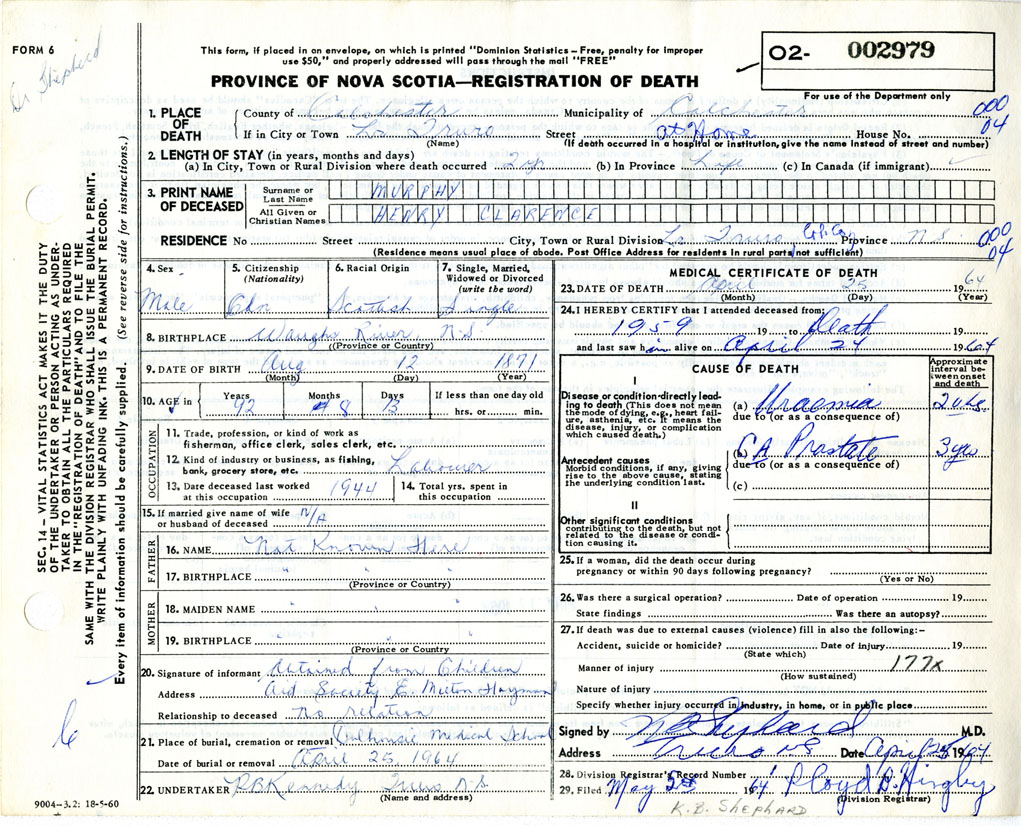 FORM 6
Dr Shepherd
This form, if placed in an envelope, on which is printed "Dominion Statistics — Free, penalty for improper
use $50," and properly addressed will pass through the mail "FREE"
PROVINCE OF NOVA SCOTIA—REGISTRATION OF DEATH
02- 002979
For use of the Department only
1. PLACE OF DEATH
County of Colchester Municipality of Colchester 000
If in City or Town Lr Truro Street at Home House No. 04
(Name) (If death occurred in a hospital or institution, give the name instead of street and number)
2. LENGTH OF STAY (in years, months and days)
(a) In City, Town or Rural Division where death occurred 2 yr (b) In Province Life (c) In Canada (if immigrant)
3. PRINT NAME OF DECEASED
Surname or Last Name MURPHY
All Given or Christian Names HENRY CLARENCE
RESIDENCE No Street City, Town or Rural Division Lr Truro Col. Coy Province N S 000
(Residence means usual place of abode. Post Office Address for residents in rural parts not sufficient) 04
4. Sex
Male
5. Citizenship
(Nationality)
Cdn
6. Racial Origin
Scotish
7. Single, Married,
Widowed or Divorced
(write the word)
Single
8. BIRTHPLACE Waughs River N-S-
(Province or Country)
9. DATE OF BIRTH Aug 12 1871
(Month) (Day) (Year)
10. AGE in
Years Months Days If less than one day old
92 8 13 hrs. or min.
OCCUPATION
11. Trade, profession, or kind of work as
fisherman, office clerk, sales clerk, etc.
12. Kind of industry or business, as fishing,
bank, grocery store, etc. Labourer
13. Date deceased last worked
at this occupation 1944
14. Total yrs. spent in
this occupation
15. If married give name of wife
or husband of deceased N/A
FATHER
16. NAME Not Known Here
17. BIRTHPLACE "
(Province or Country)
MOTHER
18. MAIDEN NAME "
19. BIRTHPLACE "
(Province or Country
20. Signature of informant Obtained from Children
Address Aid Society E. Milton Hayman
Relationship to deceased No relation
21. Place of burial, cremation or removal Dalhousie Medical School
Date of burial or removal April 25, 1964
22. UNDERTAKER RB Kennedy Truro N-S
(Name and address)
9004-3.2: 18-5-60
MEDICAL CERTIFICATE OF DEATH
23. DATE OF DEATH April 25 64
(Month) (Day) (Year)
24. I HEREBY CERTIFY that I attended deceased from:
1959 19 to Death 19
and last saw him alive on April 24 1964
CAUSE OF DEATH
Approximate
interval be-
tween onset
and death
I
Disease or condition directly lead-
ing to death (This does not mean
the mode of dying, e.g., heart fail-
ure, asthenia, etc. It means the
disease, injury, or complication
which caused death.)
(a) Uraemia 2 wks
due to (or as a consequence of)
Antecedent causes
Morbid conditions, if any, giving
rise to the above cause, stating
the underlying condition last.
(b) CA Prostate 3 yrs
due to (or as a consequence of)
(c)
II
Other significant conditions
contributing to the death, but not
related to the disease or condi-
tion causing it.
25. If a woman, did the death occur during
pregnancy or within 90 days following pregnancy?
(Yes or No)
26. Was there a surgical operation? Date of operation 19
State findings Was there an autopsy?
27. If death was due to external causes (violence) fill in also the following:—
Accident, suicide or homicide? Date of injury 19
(State which)
Manner of injury 177x
(How sustained)
Nature of injury
Specify whether injury occurred in industry, in home, or in public place
Signed by K B Shephard M.D.
Address Truro NS Date April 25 1964
28. Division Registrar's Record Number
29. Filed May 2nd 1964 Lloyd
(Division Registrar)
K. B. SHEPHARD
SEC. 14 – VITAL STATISTICS ACT MAKES IT THE DUTY
OF THE UNDERTAKER OR PERSON ACTING AS UNDER-
TAKER TO OBTAIN ALL THE PARTICULARS REQUIRED
IN THE "REGISTRATION OF DEATH" AND TO FILE THE
SAME WITH THE DIVISION REGISTRAR WHO SHALL ISSUE THE BURIAL PERMIT.
WRITE PLAINLY WITH UNFADING INK. THIS IS A PERMANENT RECORD.
Every item of information should be carefully supplied. (See reverse side for instructions.)